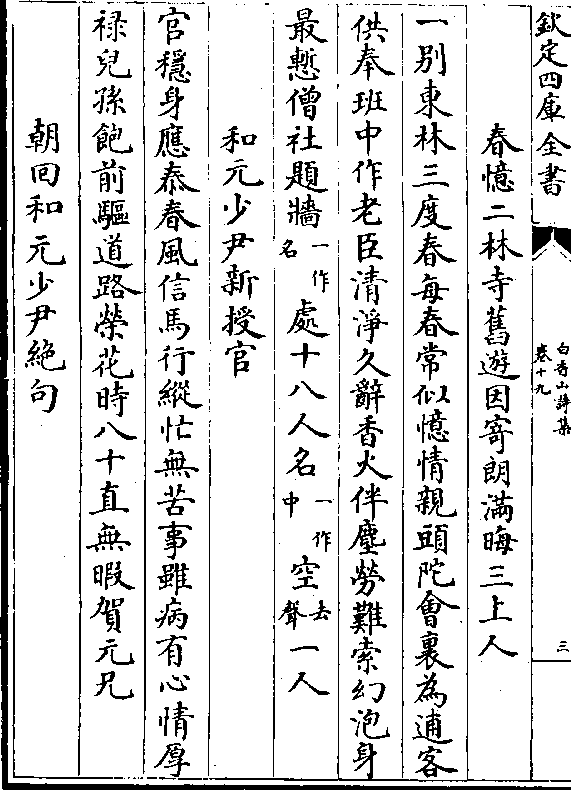 欽定四庫全書
白香山詩集
卷十九
三
春憶二林寺舊遊因寄朗滿晦三上人
一别東林三度春每春常似憶情親頭陀會裏為逋客
供奉班中作老臣清淨久辭香火伴塵勞難索幻泡身
最慙僧社題牆一作名處十八人名一作中空去聲一人
和元少尹新授官
官穩身應泰春風信馬行縱忙無苦事雖病有心情厚
禄兒孫飽前驅道路榮花時八十直無暇賀元兄
朝回和元少尹絶句